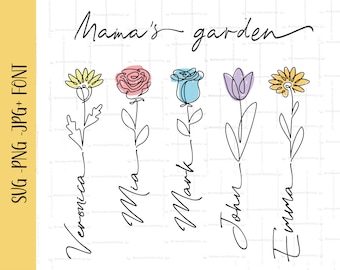 Mama's garden
SVG -PNG -JPG+ FONT
Veronica
Mia
Mark
John
Emma